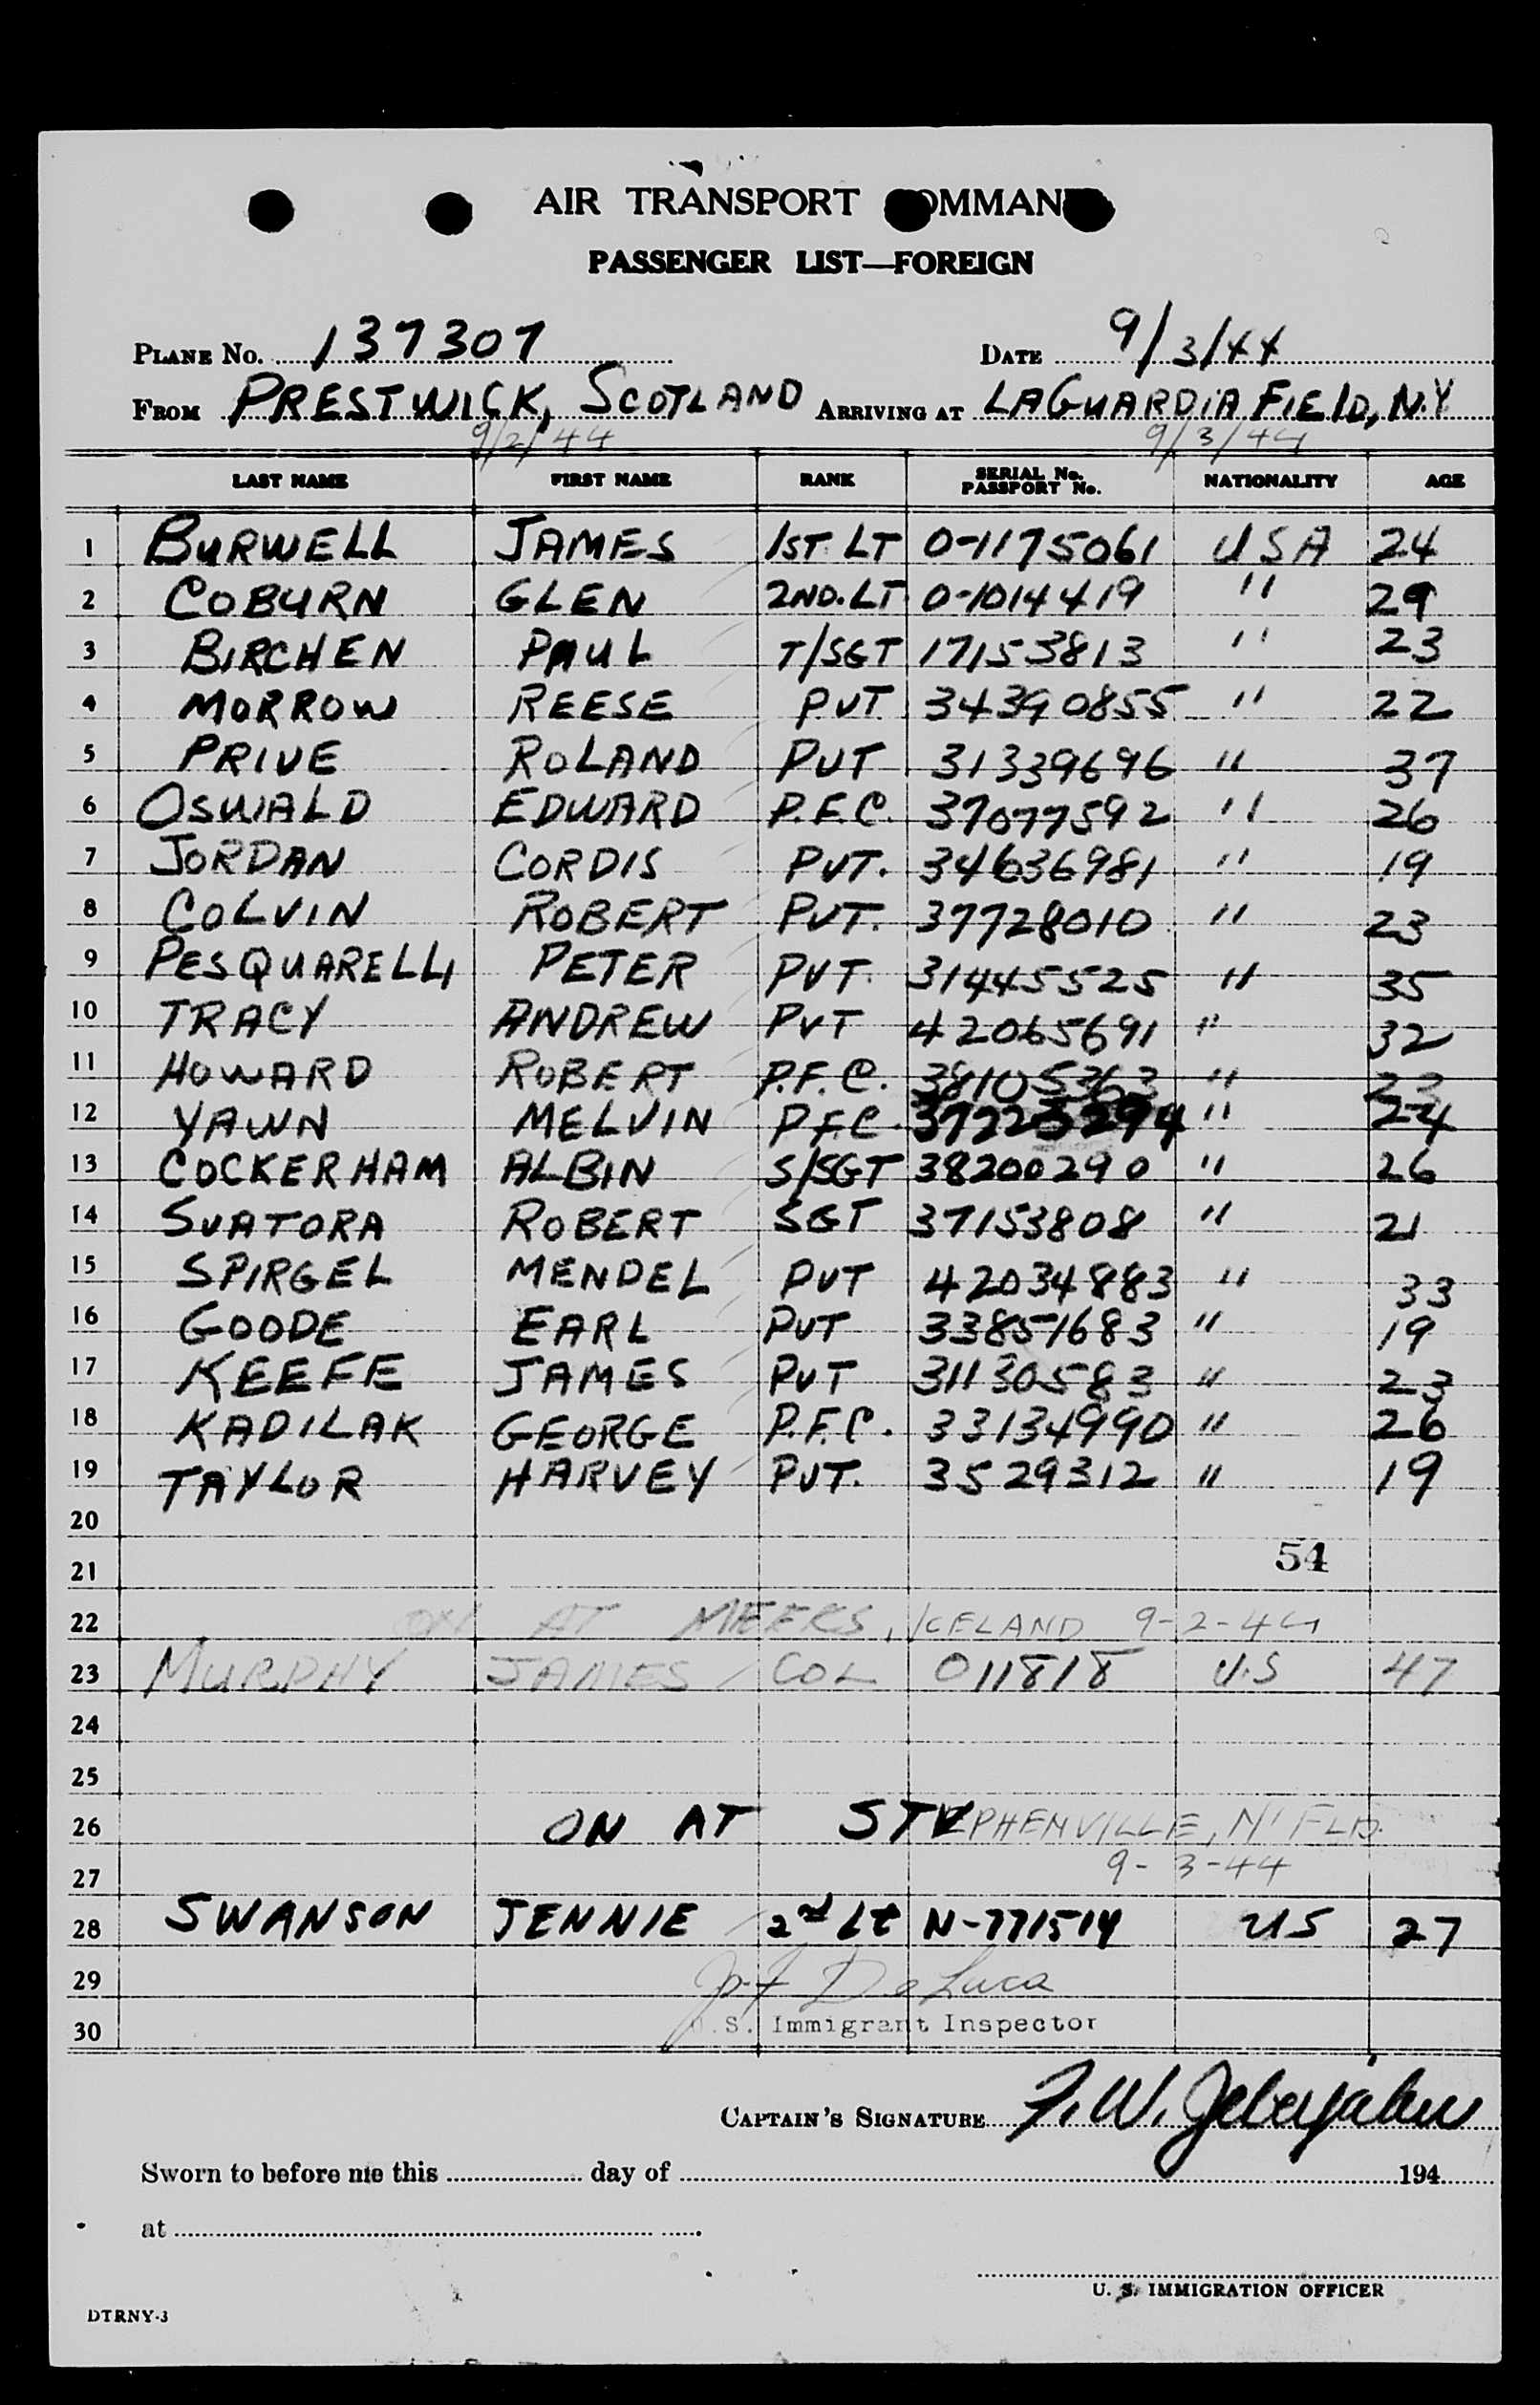 AIR TRANSPORT COMMAND
PASSENGER LIST—FOREIGN
PLANE NO. 137307 DATE 9/3/44
FROM PRESTWICK, SCOTLAND ARRIVING AT LAGUARDIA FIELD, N.Y
9/2/44 9/3/44
LAST NAME FIRST NAME RANK SERIAL No. PASSPORT No. NATIONALITY AGE
1 BURWELL JAMES 1ST LT 0-1175061 USA 24
2 COBURN GLEN 2ND. LT 0-1014419 " 29
3 BIRCHEN PAUL T/SGT 17153813 " 23
4 MORROW REESE PVT 34390855 " 22
5 PRIVE ROLAND PVT 31339696 " 37
6 OSWALD EDWARD P.F.C. 37077592 " 26
7 JORDAN CORDIS PVT. 34636981 " 19
8 COLVIN ROBERT PVT. 37728010 " 23
9 PESQUARELLI PETER PVT. 31445525 " 35
10 TRACY ANDREW PVT 42065691 " 32
11 HOWARD ROBERT P.F.C. 38105363 " 23
12 YAWN MELVIN P.F.C. " 24
13 COCKERHAM ALBIN S/SGT 38200290 " 26
14 SVATORA ROBERT SGT 37153808 " 21
15 SPIRGEL MENDEL PVT 42034883 " 33
16 GOODE EARL PVT 33851683 " 19
17 KEEFE JAMES PVT 31130583 " 23
18 KADILAK GEORGE P.F.C. 33134990 " 26
19 TAYLOR HARVEY PVT. 3529312 " 19
20
21 54
22 ON AT MEEKS, ICELAND 9-2-44
23 MURPHY JAMES COL 011818 U.S 47
24
25
26 ON AT STEPHENVILLE, N'FLD.
27 9-3-44
28 SWANSON JENNIE 2nd Lt N-771514 US 27
29 De Luca
30 U.S. Immigrant Inspector
CAPTAIN'S SIGNATURE F. W.
Sworn to before me this day of 194
at
U. S. IMMIGRATION OFFICER
DTRNY-3